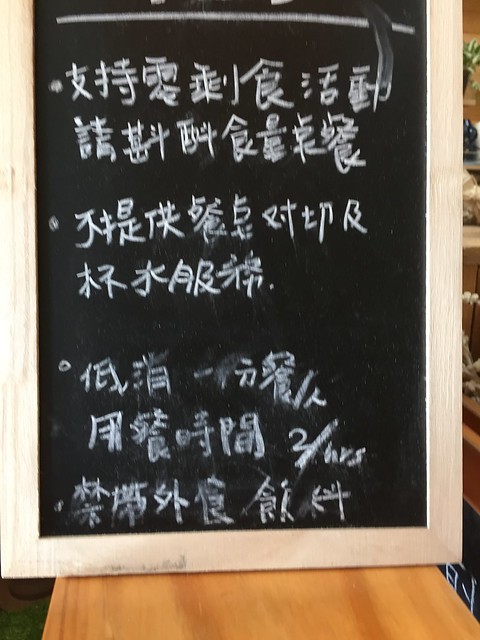 ·支持零剩食活動
請斟酌食量桌餐
·不提供餐桌对切及
杯水服務.
·低消一份餐/人
用餐時間 2/hrs
·禁帶外食飲料